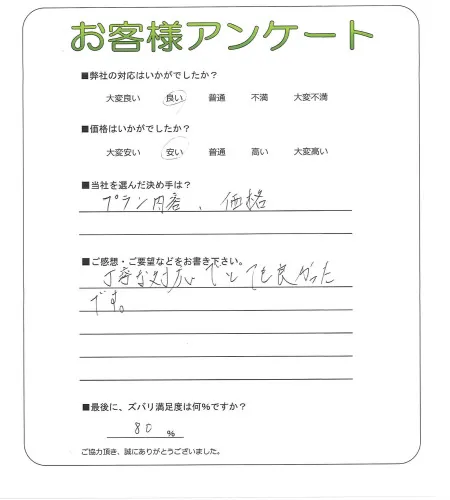 お客様アンケート
■弊社の対応はいかがでしたか?
大変良い 良い 普通 不満 大変不満
■価格はいかがでしたか?
大変安い 安い 普通 高い 大変高い
■当社を選んだ決め手は?
プラン内容、価格
■ご感想・ご要望などをお書き下さい。
丁寧な対応でとても良かった
です。
■最後に、ズバリ満足度は何%ですか?
80 %
ご協力頂き、誠にありがとうございました。